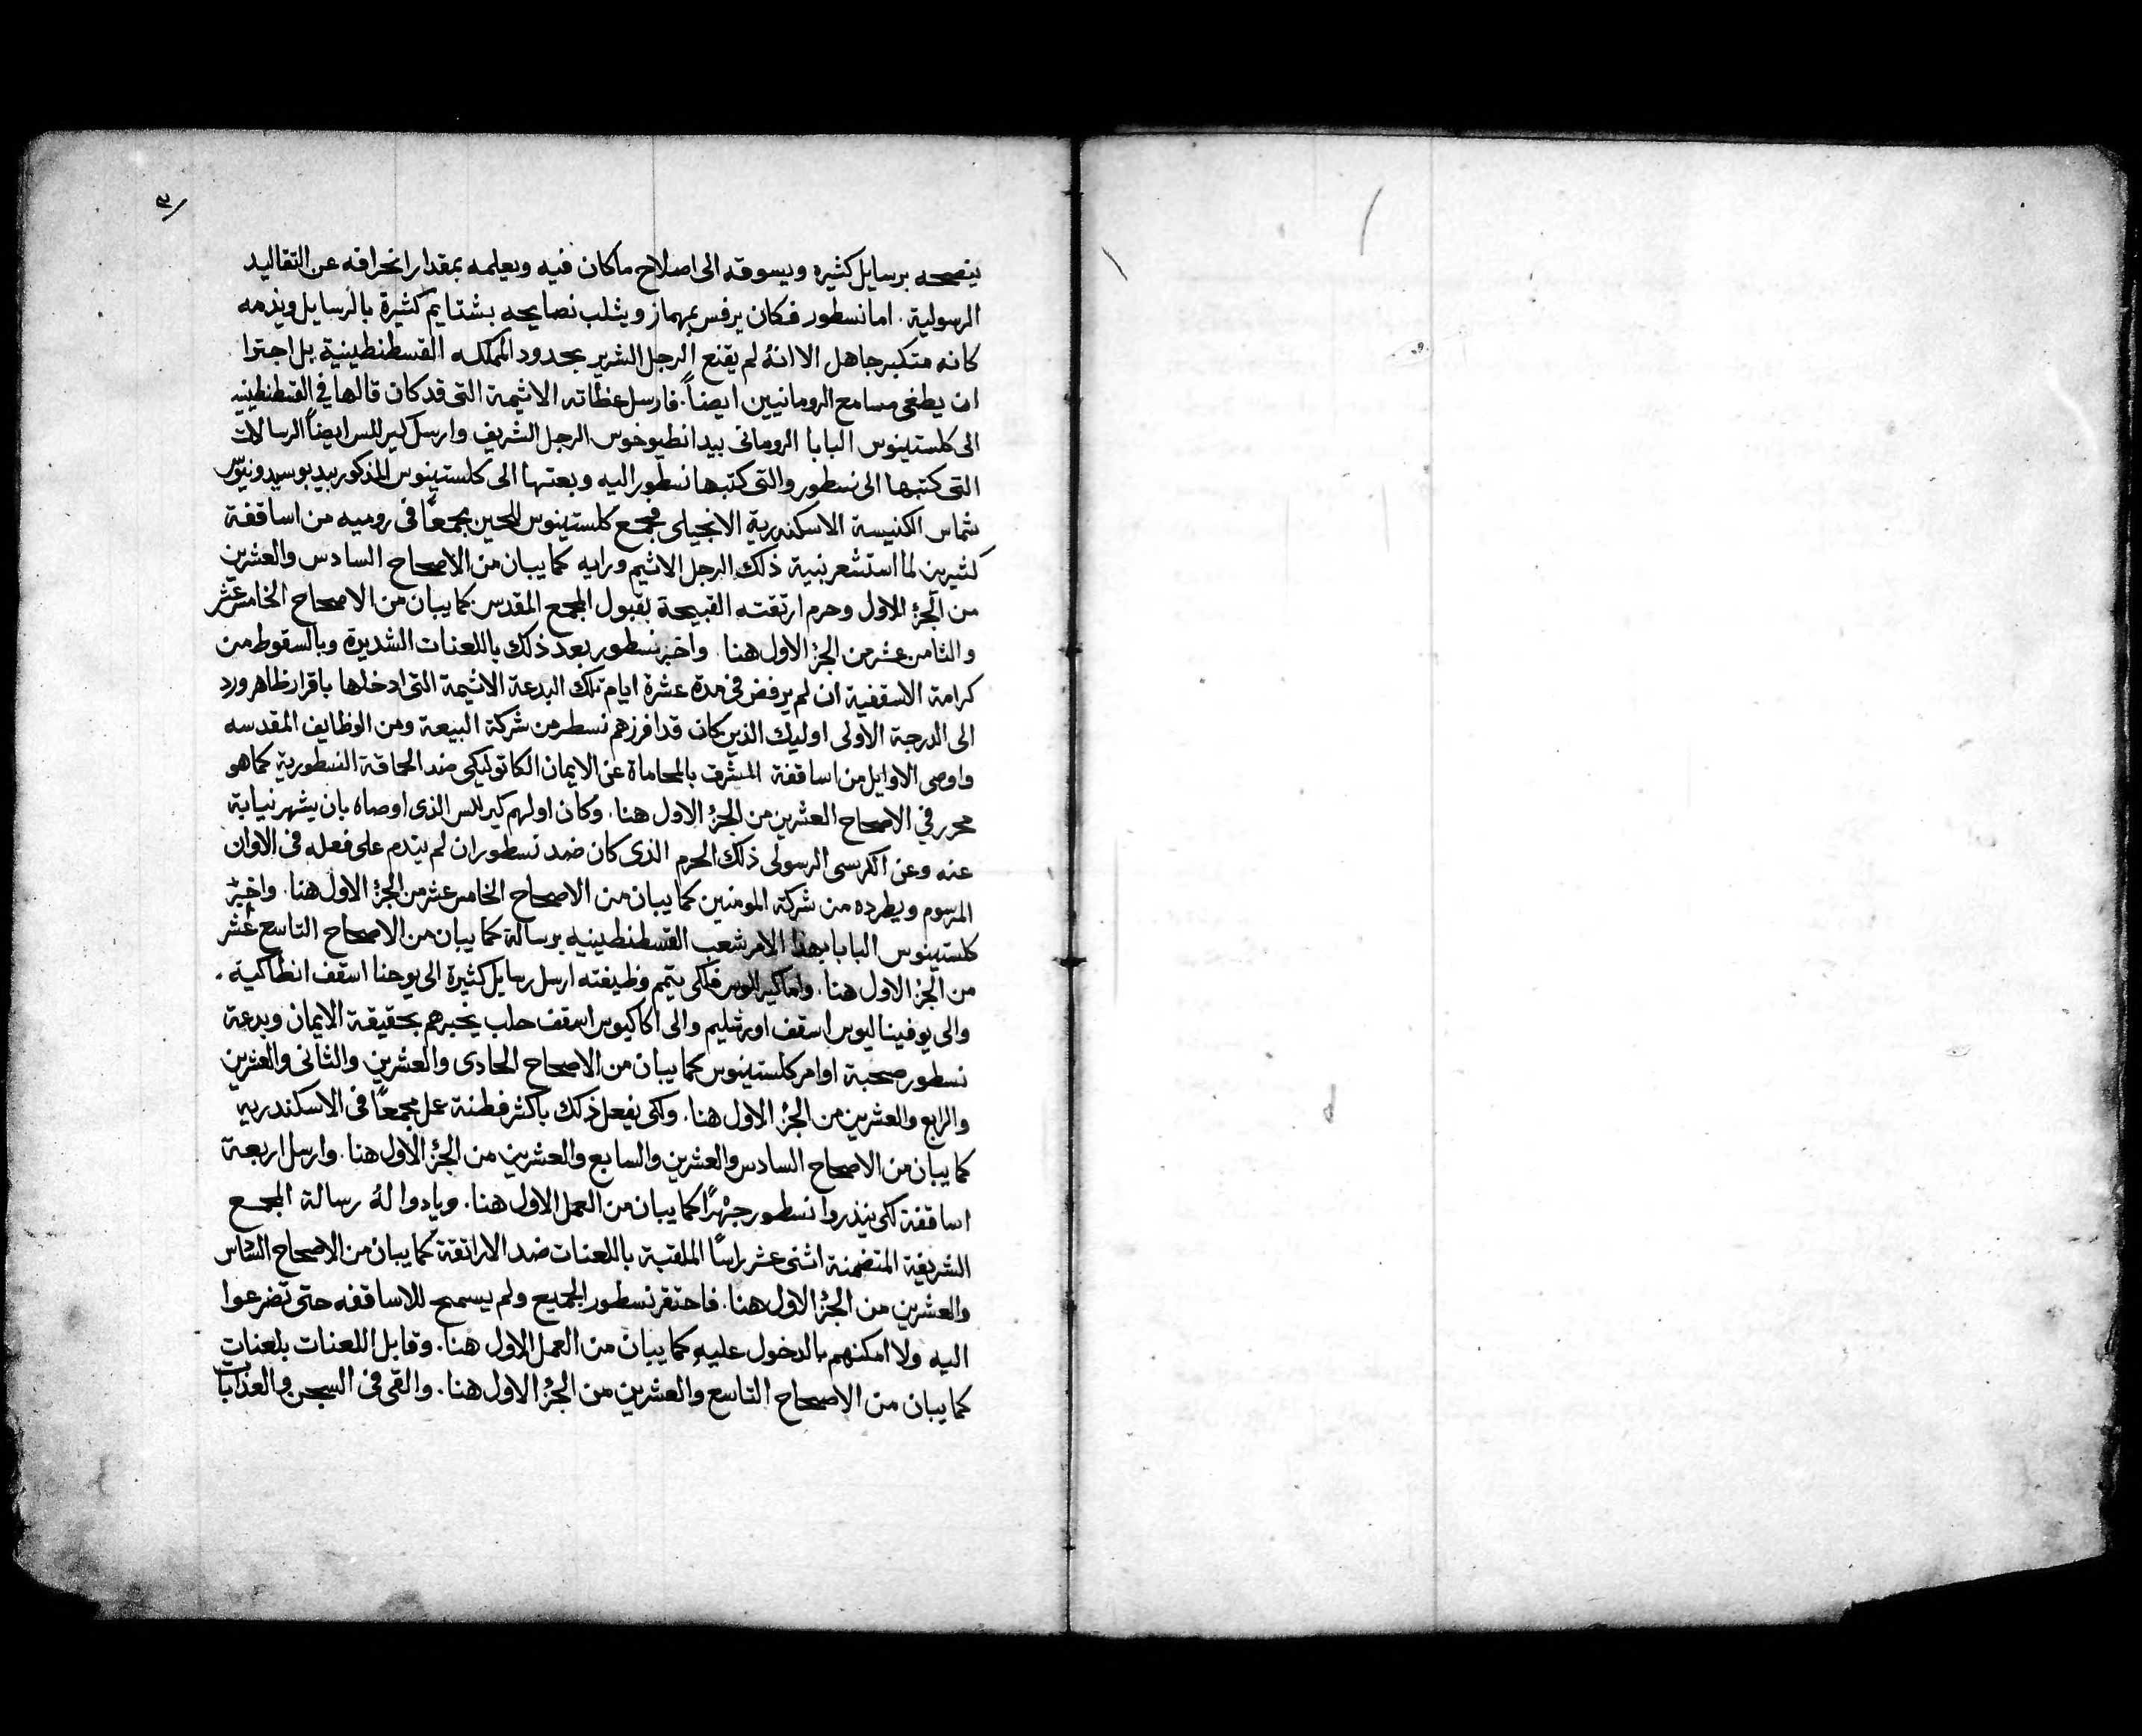 ٣
ينصحه برسايل كثيره ويسوقه الى اصلاح ماكان فيه ويعلمه بمقدار انحرافه عن التقاليد
الرسولية. اما نسطور فكان يرفس بمهماز ويثلب نصايحه بشتايم كثيرة بالرسايل ويذمه
كانه متكبر جاهل الا انهُ لم يقنع الرجل الشرير بحدود المملكه القسطنطينية بل اجترا
ان يطغى مسامع الرومانيين ايضاً. فارسل عظاته الاثيمة التى قد كان قالها في القسطنطينيه
الى كلستينوس البابا الرومانى بيد انطيوخوس الرجل الشريف وارسل كيرللس ايضاً الرسالات
التى كتبها الى نسطور والتى كتبها نسطور اليه وبعتها الى كلستينوس المذكور بيد بوسيدونيوس
شماس الكنيسة الاسكندرية الانجيلى فجمع كلستينوس للحين مجمعاً فى روميه من اساقفة
كثيرين لما استشعر بنية ذلك الرجل الاثيم ورايه كما يبان من الاصحاح السادس والعشرين
من الجزُ الاول وحرم ارتقته القبيحة بقبول المجمع المقدس كما يبان من الاصحاح الخامس عشر
والثامن عشر من الجزُ الاول هنا. واخبر نسطور بعد ذلك باللعنات الشديدة وبالسقوط من
كرامة الاسقفية ان لم يرفض فى مدة عشرة ايام تلك البدعة الاثيمة التى ادخلها باقرار ظاهر ورد
الى الدرجة الاولى اوليك الذين كان قد افرزهم نسطر من شركة البيعة ومن الوظايف المقدسه
واوصى الاوايل من اساقفة المشرق بالمحاماة عن الايمان الكاتوليكى ضد الحماقة النسطورية كما هو
محرر في الاصحاح العشرين من الجزُ الاول هنا. وكان اولهم كيرللس الذى اوصاه بان يشهر نيابة
عنه وعن الكرسى الرسولى ذلك الحرم الذى كان ضد نسطور ان لم يتدم على فعله فى الاوان
المرسوم ويطرده من شركة المومنين كما يبان من الاصحاح الخامس عشر من الجزُ الاول هنا. واخبر
كلستينوس البابا بهذا الامر شعب القسطنطينيه برسالة كما يبان من الاصحاح التاسع عشر
من الجزُ الاول هنا. واما كيرللوس فلكى يتمم وظيفته ارسل رسايل كثيرة الى يوحنا اسقف انطاكية.
والى يوفيناليوس اسقف اورشليم والى اكاكيوس اسقف حلب يخبرهم بحقيقة الايمان وبدعة
نسطور صحبة اوامر كلستينوس كما يبان من الاصحاح الحادى والعشرين والثانى والعشرين
والرابع والعشرين من الجزُ الاول هنا. ولكى يفعل ذلك باكثر فطنة عمل مجمعاً فى الاسكندريه
كما يبان من الاصحاح السادس والعشرين والسابع والعشرين من الجزُ الاول هنا. وارسل اربعة
اساقفة لكى ينذروا نسطور جهراً كما يبان من العمل الاول هنا. ويادوا لهُ رسالة المجمع
الشريفة المتضمنة اثنى عشر راسًا الملقبة باللعنات ضد الاراتقة كما يبان من الاصحاح السادس
والعشرين من الجزُ الاول هنا. فاحتقر نسطور الجميع ولم يسمح للاساقفه حتى تضرعوا
اليه ولا امكنهم بالدخول عليه كما يبان من العمل الاول هنا. وقابل اللعنات بلعنات
كما يبان من الاصحاح التاسع والعشرين من الجزُ الاول هنا. والقى فى السجن والعذابات